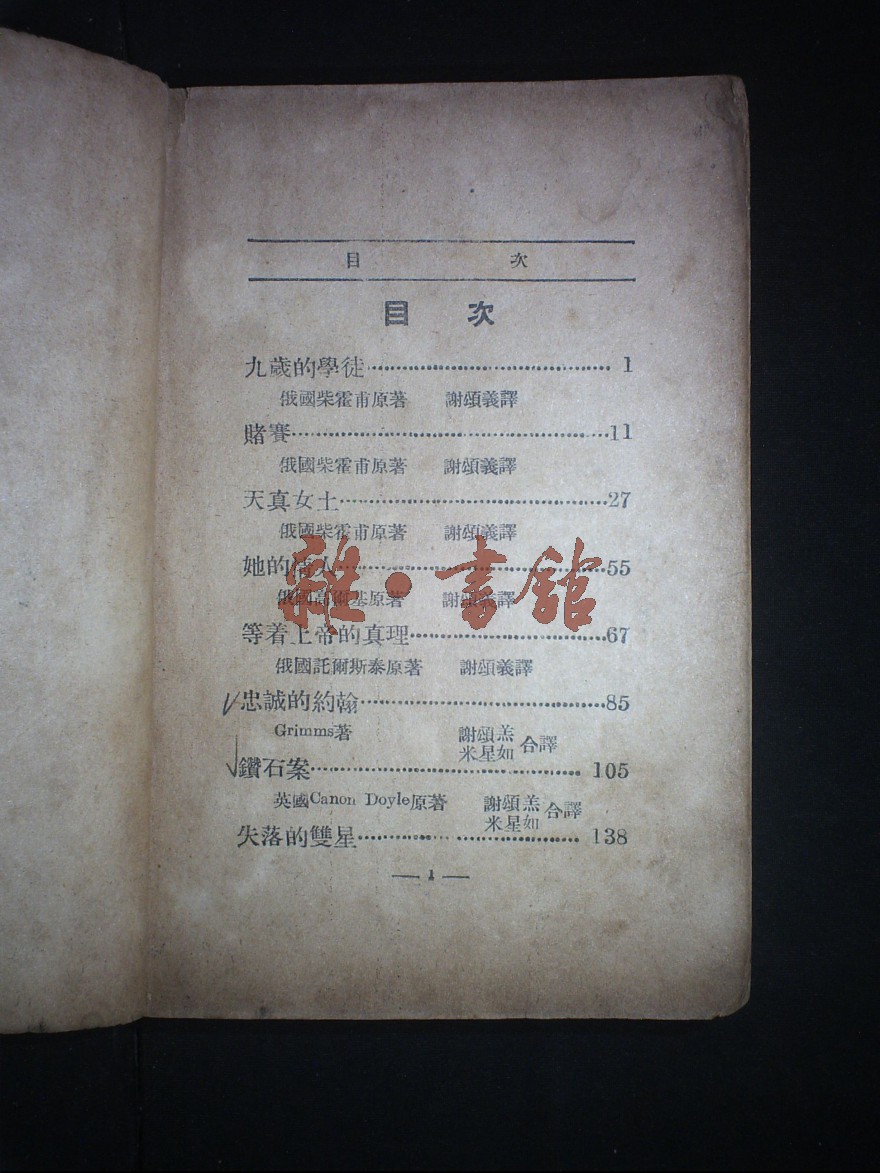 目 次
目 次
九歲的學徒 1
俄國柴霍甫原著 謝頌義譯
賭賽 11
俄國柴霍甫原著 謝頌義譯
天真女士 27
俄國柴霍甫原著 謝頌義譯
她的情人 55
俄國高爾基原著 謝頌義譯
雜·書館
等着上帝的真理 67
俄國託爾斯泰原著 謝頌義譯
忠誠的約翰 85
Grimms著 謝頌羔 米星如 合譯
鑽石案 105
英國Canon Doyle原著 謝頌羔 米星如 合譯
失落的雙星 138
— 1 —